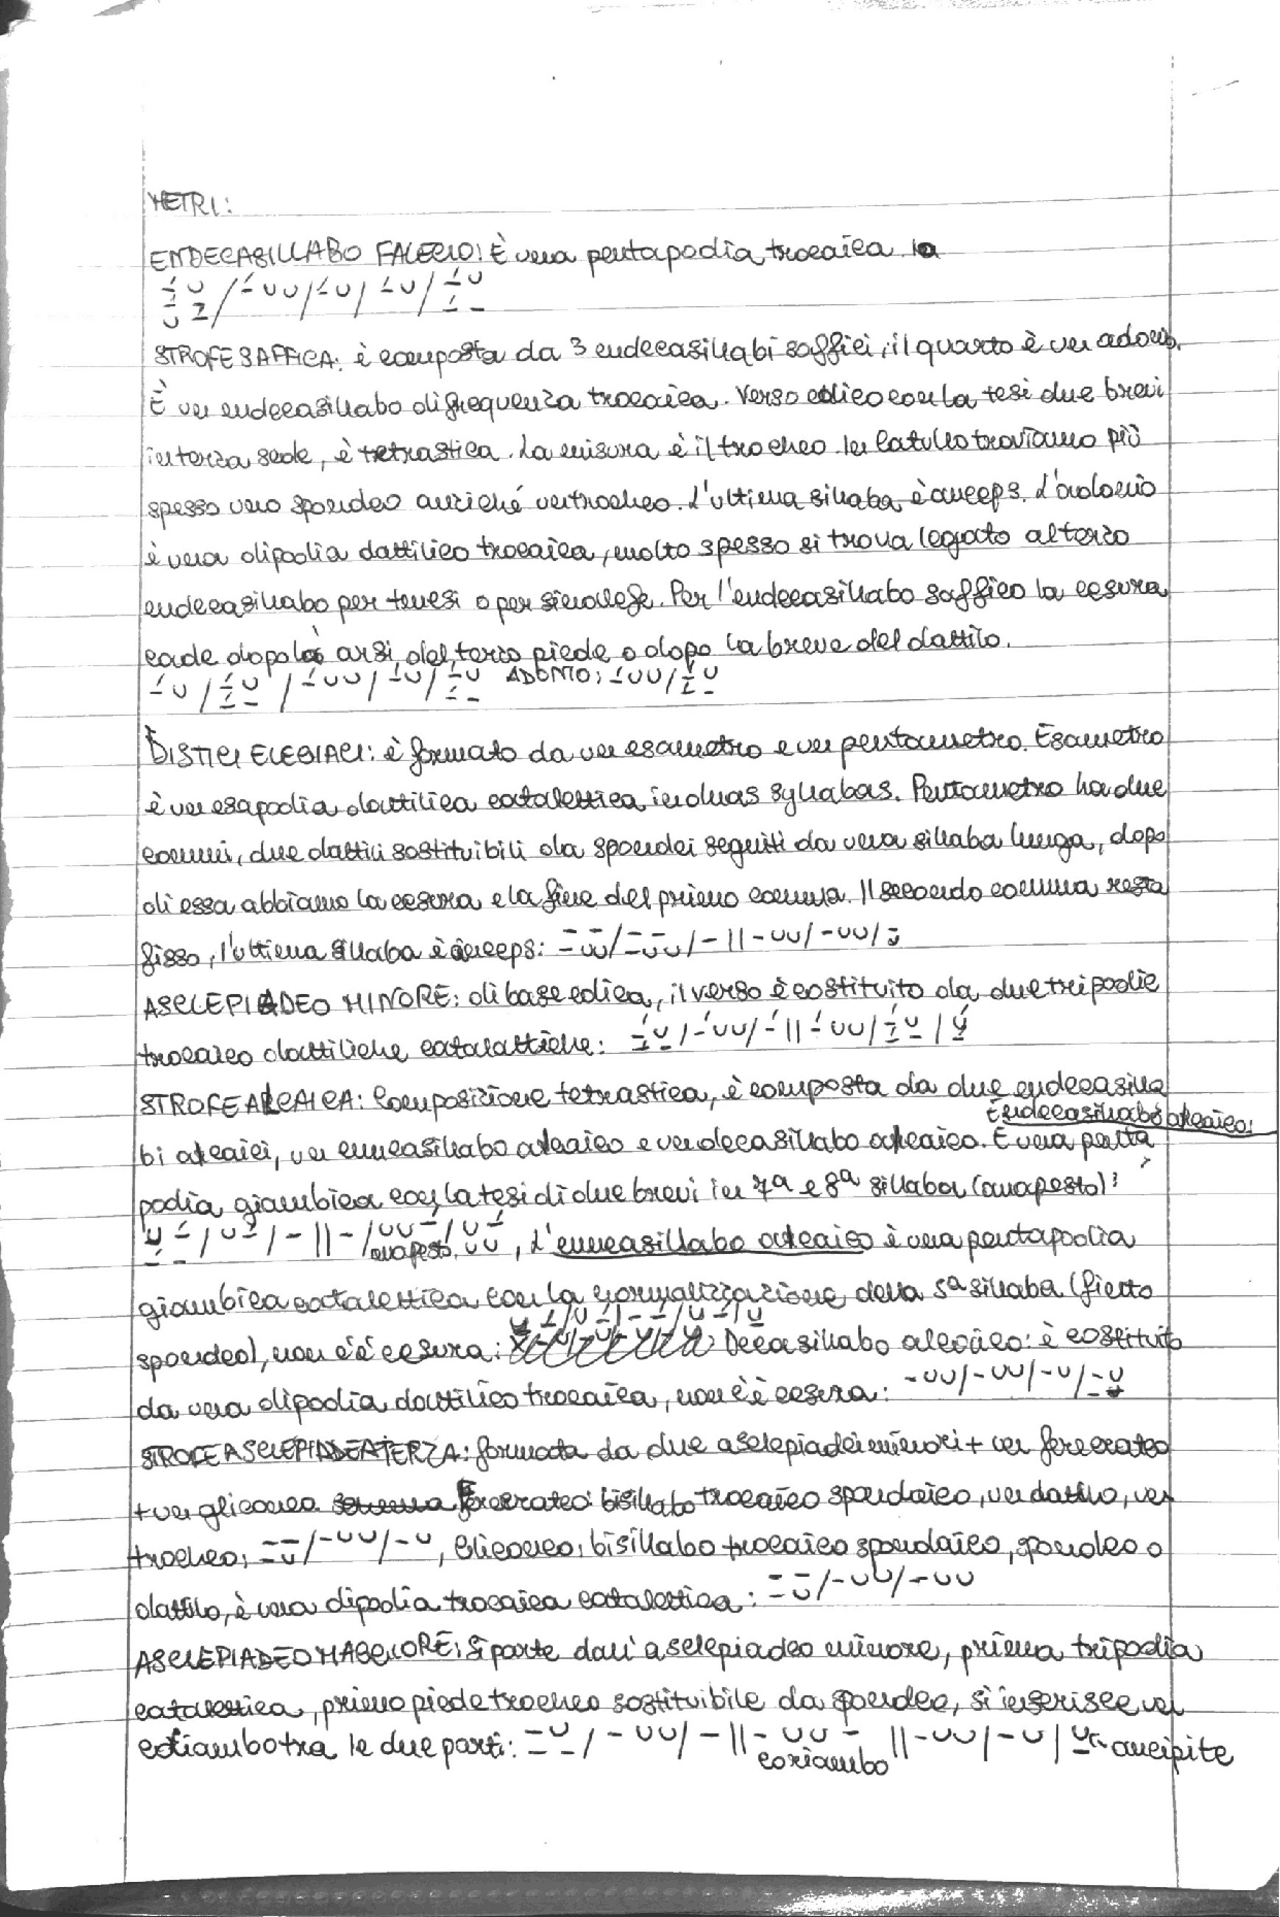 METRI:
ENDECASILLABO FALECIO: È una pentapodia trocaica
STROFE SAFFICA: è composta da 3 endecasillabi saffici, il quarto è un adonio.
È un endecasillabo di frequenza trocaica. Verso eolico con la tesi due brevi
in terza sede, è tetrastica. La misura è il trocheo. In Catullo troviamo più
spesso uno spondeo anziché un trocheo. L'ultima sillaba è anceps. L'adonio
è una dipodia dattilico trocaica, molto spesso si trova legato al terzo
endecasillabo per tmesi o per sinalefe. Per l'endecasillabo saffico la cesura
cade dopo la arsi del terzo piede o dopo la breve del dattilo.
– ∪ / – ∪ / – ∪ ∪ / – ∪ / – ∪ ADONIO: – ∪ ∪ / – ∪
DISTICI ELEGIACI: è formato da un esametro e un pentametro. Esametro
è un esapodia dattilica catalettica in duas syllabas. Pentametro ha due
commi, due dattili sostituibili da spondei seguiti da una sillaba lunga, dopo
di essa abbiamo la cesura e la fine del primo comma. Il secondo comma resta
fisso, l'ultima sillaba è anceps: – ∪∪ / – ∪∪ / – || – ∪∪ / – ∪∪ / ∪
ASCLEPIADEO MINORE: di base eolica, il verso è costituito da due tripodie
trocaico dattiliche catalattiche: – ∪ / – ∪∪ / – || – ∪∪ / – ∪ / ∪
STROFE ALCAICA: Composizione tetrastica, è composta da due endecasilla
Endecasillabo alcaico:
bi alcaici, un enneasillabo alcaico e un decasillabo alcaico. È una penta
podia giambica con la tesi di due brevi in 7ª e 8ª sillaba (anapesto):
∪ – / ∪ – / – || – / ∪∪ – / ∪ – anapesto ∪∪, L'enneasillabo alcaico è una pentapodia
giambica catalettica con la normalizzazione della 5ª sillaba (fietto
∪ – / ∪ – / – – / ∪ – / ∪
spondeo), non c'è cesura: Decasillabo alcaico: è costituito
da una dipodia dattilico trocaica, non c'è cesura: – ∪∪ / – ∪∪ / – ∪ / – ∪
STROFE ASCLEPIADEA TERZA: formata da due asclepiadei minori + un ferecrateo
+ un gliconeo Ferecrateo: bisillabo trocaico spondaico, un dattilo, un
trocheo: – – / – ∪∪ / – ∪, Gliconeo: bisillabo trocaico spondaico, spondeo o
dattilo, è una dipodia trocaica catalettica: – – / – ∪∪ / – ∪∪
ASCLEPIADEO MAGGIORE: Si parte dall'asclepiadeo minore, prima tripodia
catalettica, primo piede trocheo sostituibile da spondeo, si inserisce un
coriambo tra le due parti: – ∪ / – ∪∪ / – || – ∪∪ – || – ∪∪ / – ∪ / ∪ ancipite
coriambo